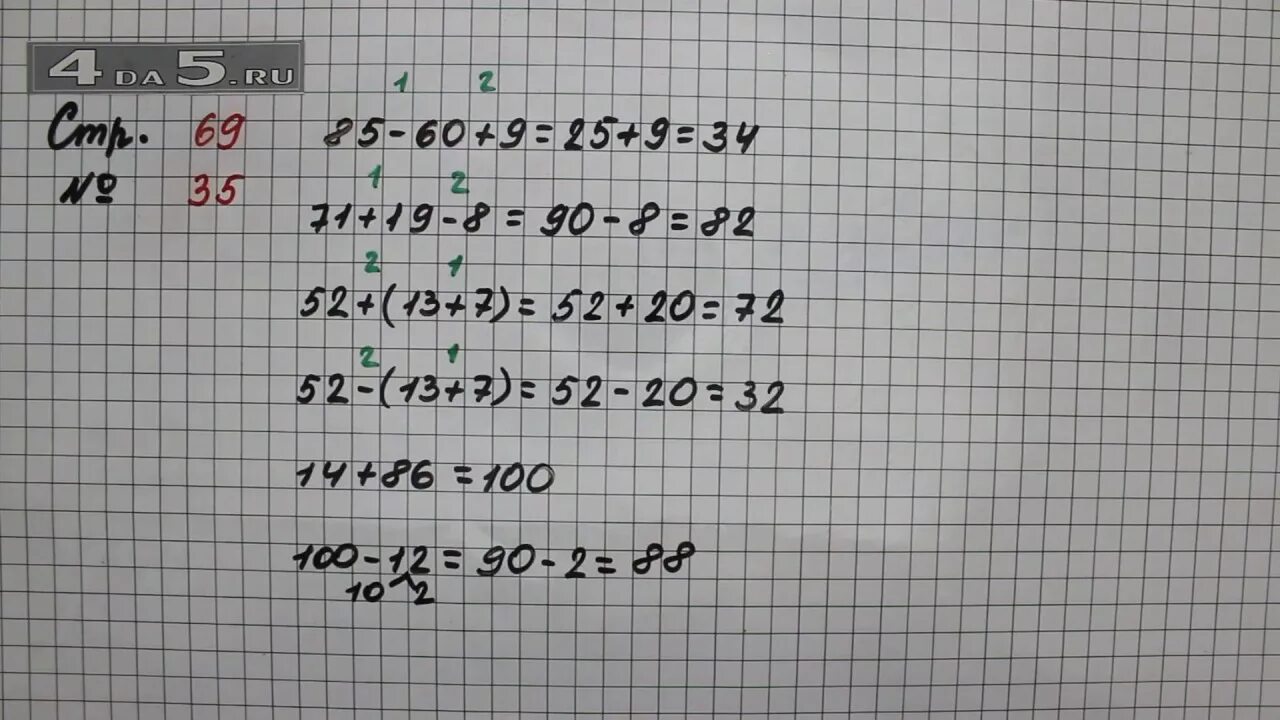 4 DA 5.RU
1 2
Стр. 69 85-60+9=25+9=34
1 2
№ 35
71+19-8=90-8=82
2 1
52+(13+7)=52+20=72
2 1
52-(13+7)=52-20=32
14+86=100
100-12=90-2=88
10 2